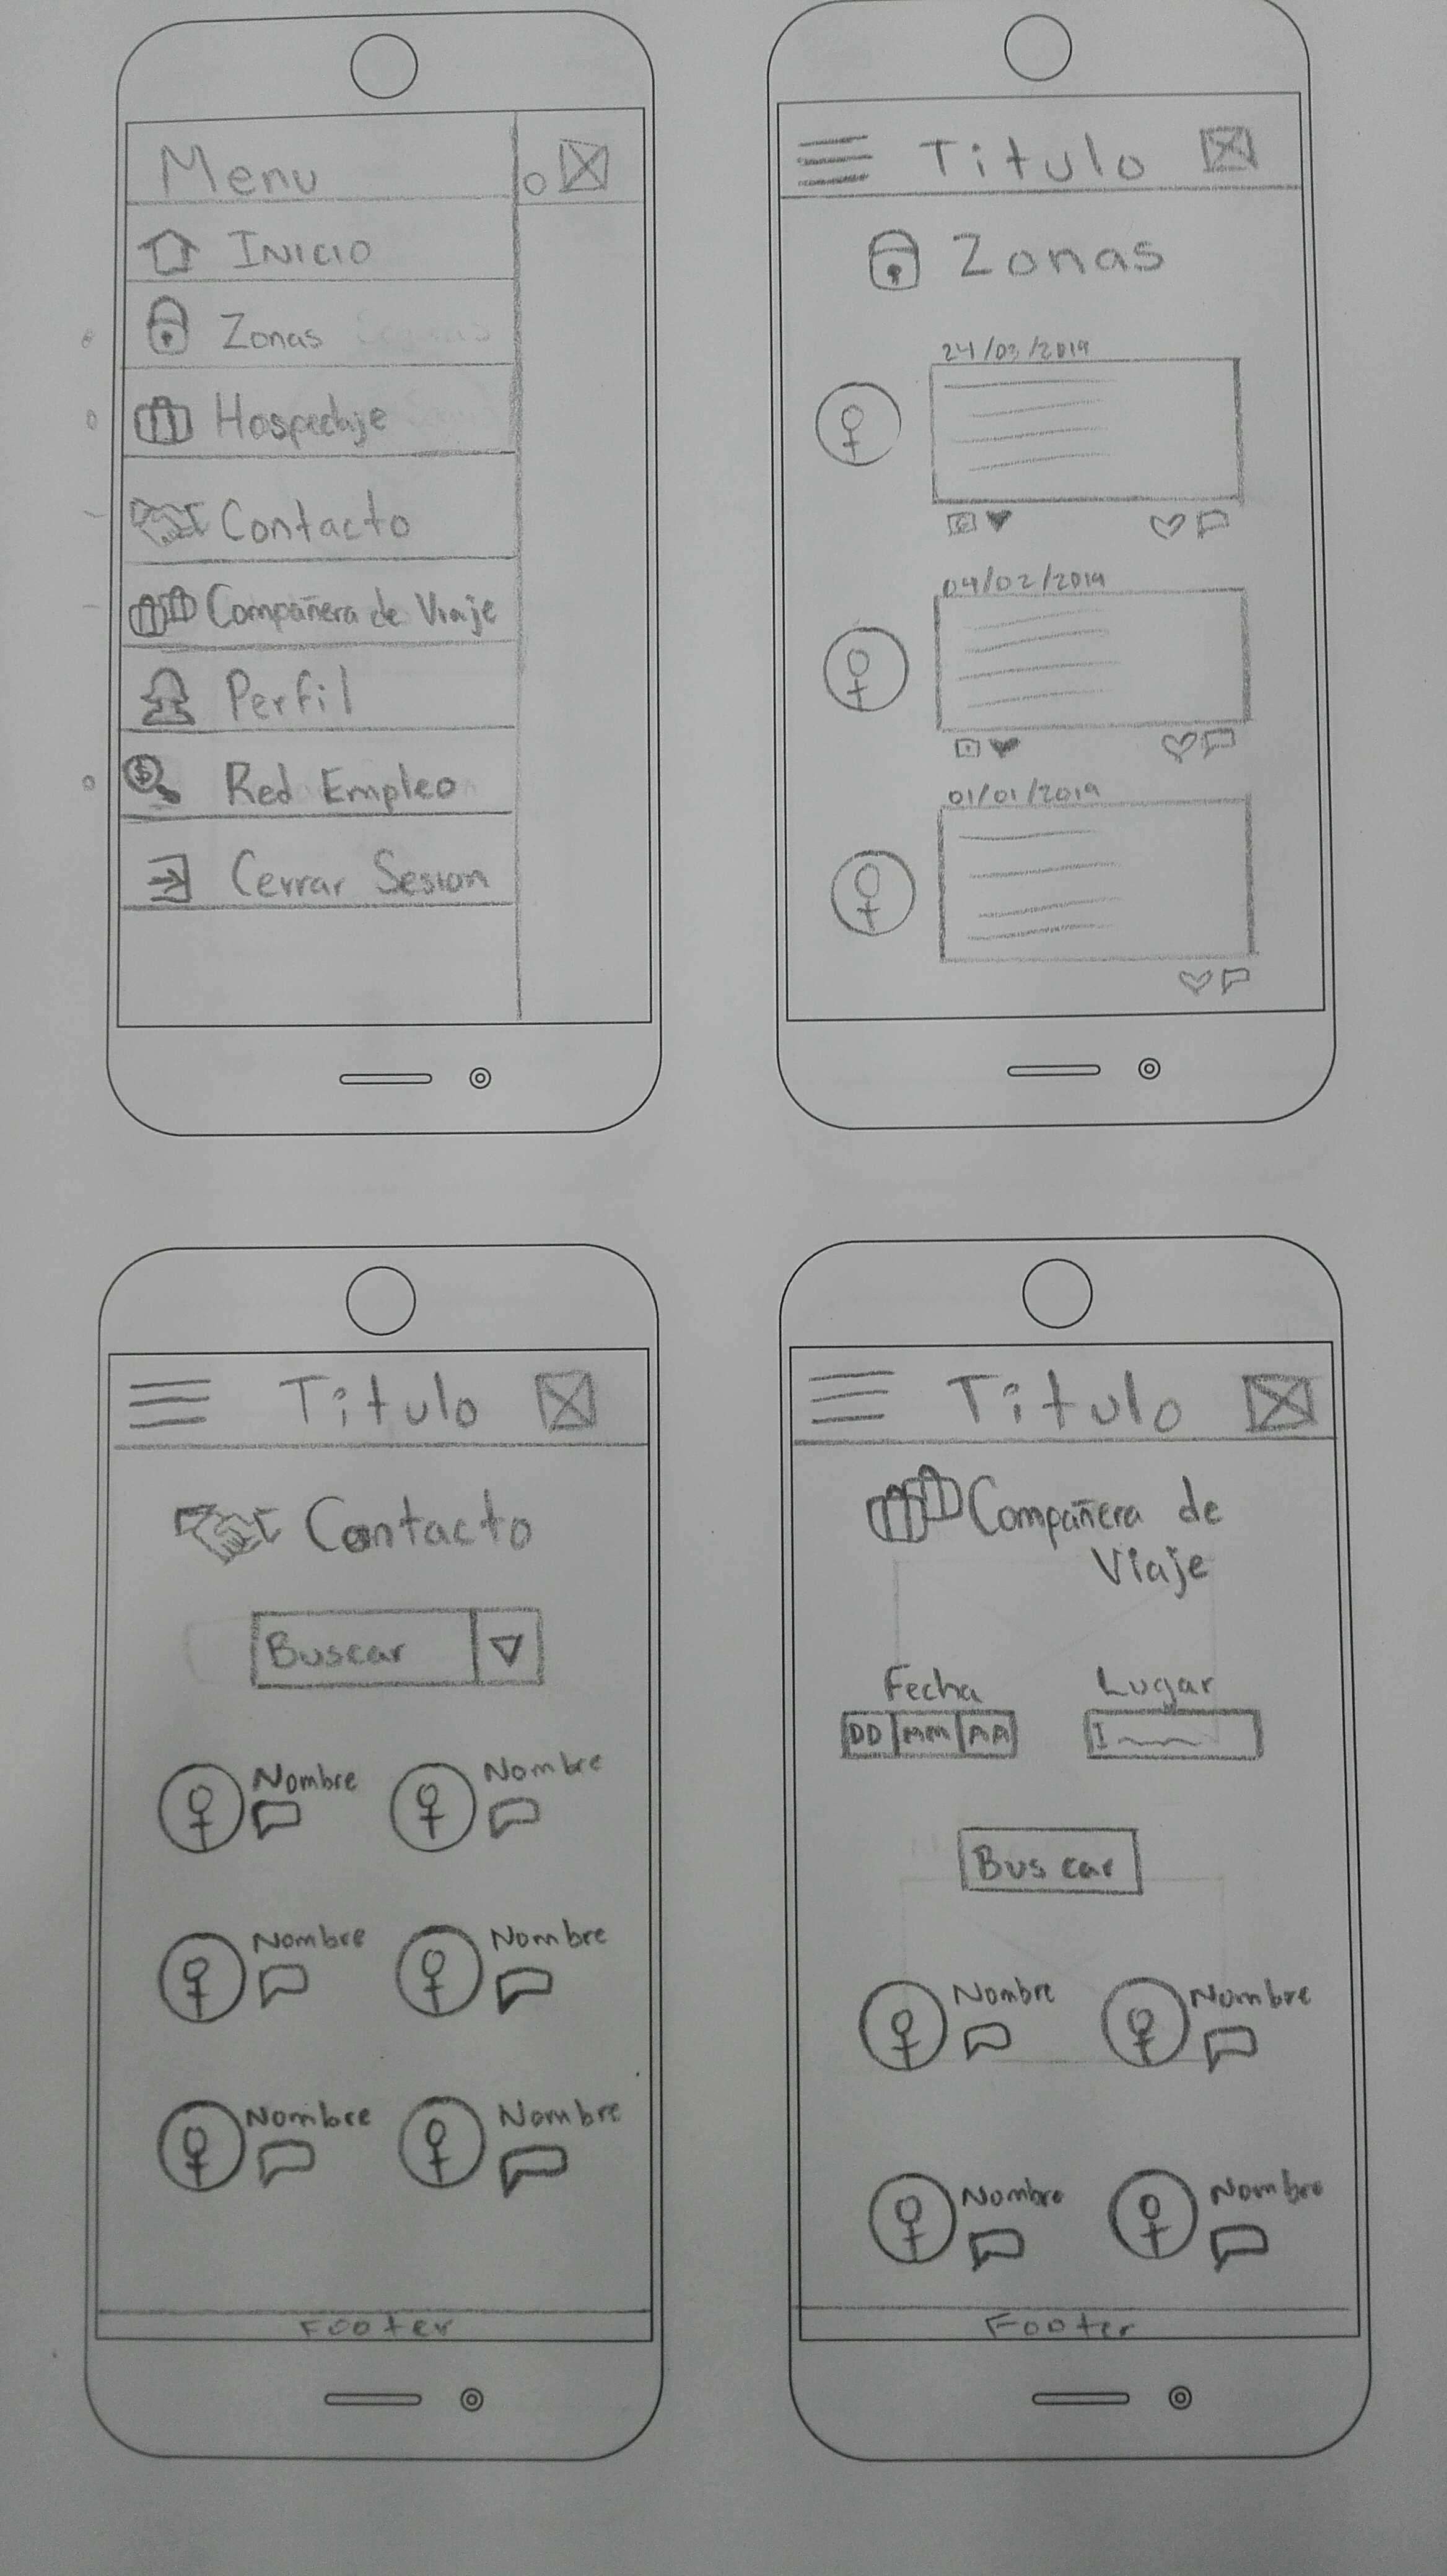 Menu
o
INICIO
Zonas
Hospedaje
Contacto
Compañera de Viaje
Perfil
Red Empleo
Cerrar Sesion
Titulo
Zonas
24/03/2019
04/02/2019
01/01/2019
Titulo
Contacto
Buscar
Nombre Nombre
Nombre Nombre
Nombre Nombre
Footer
Titulo
Compañera de
Viaje
Fecha Lugar
DD MM AA
Buscar
Nombre Nombre
Nombre Nombre
Footer